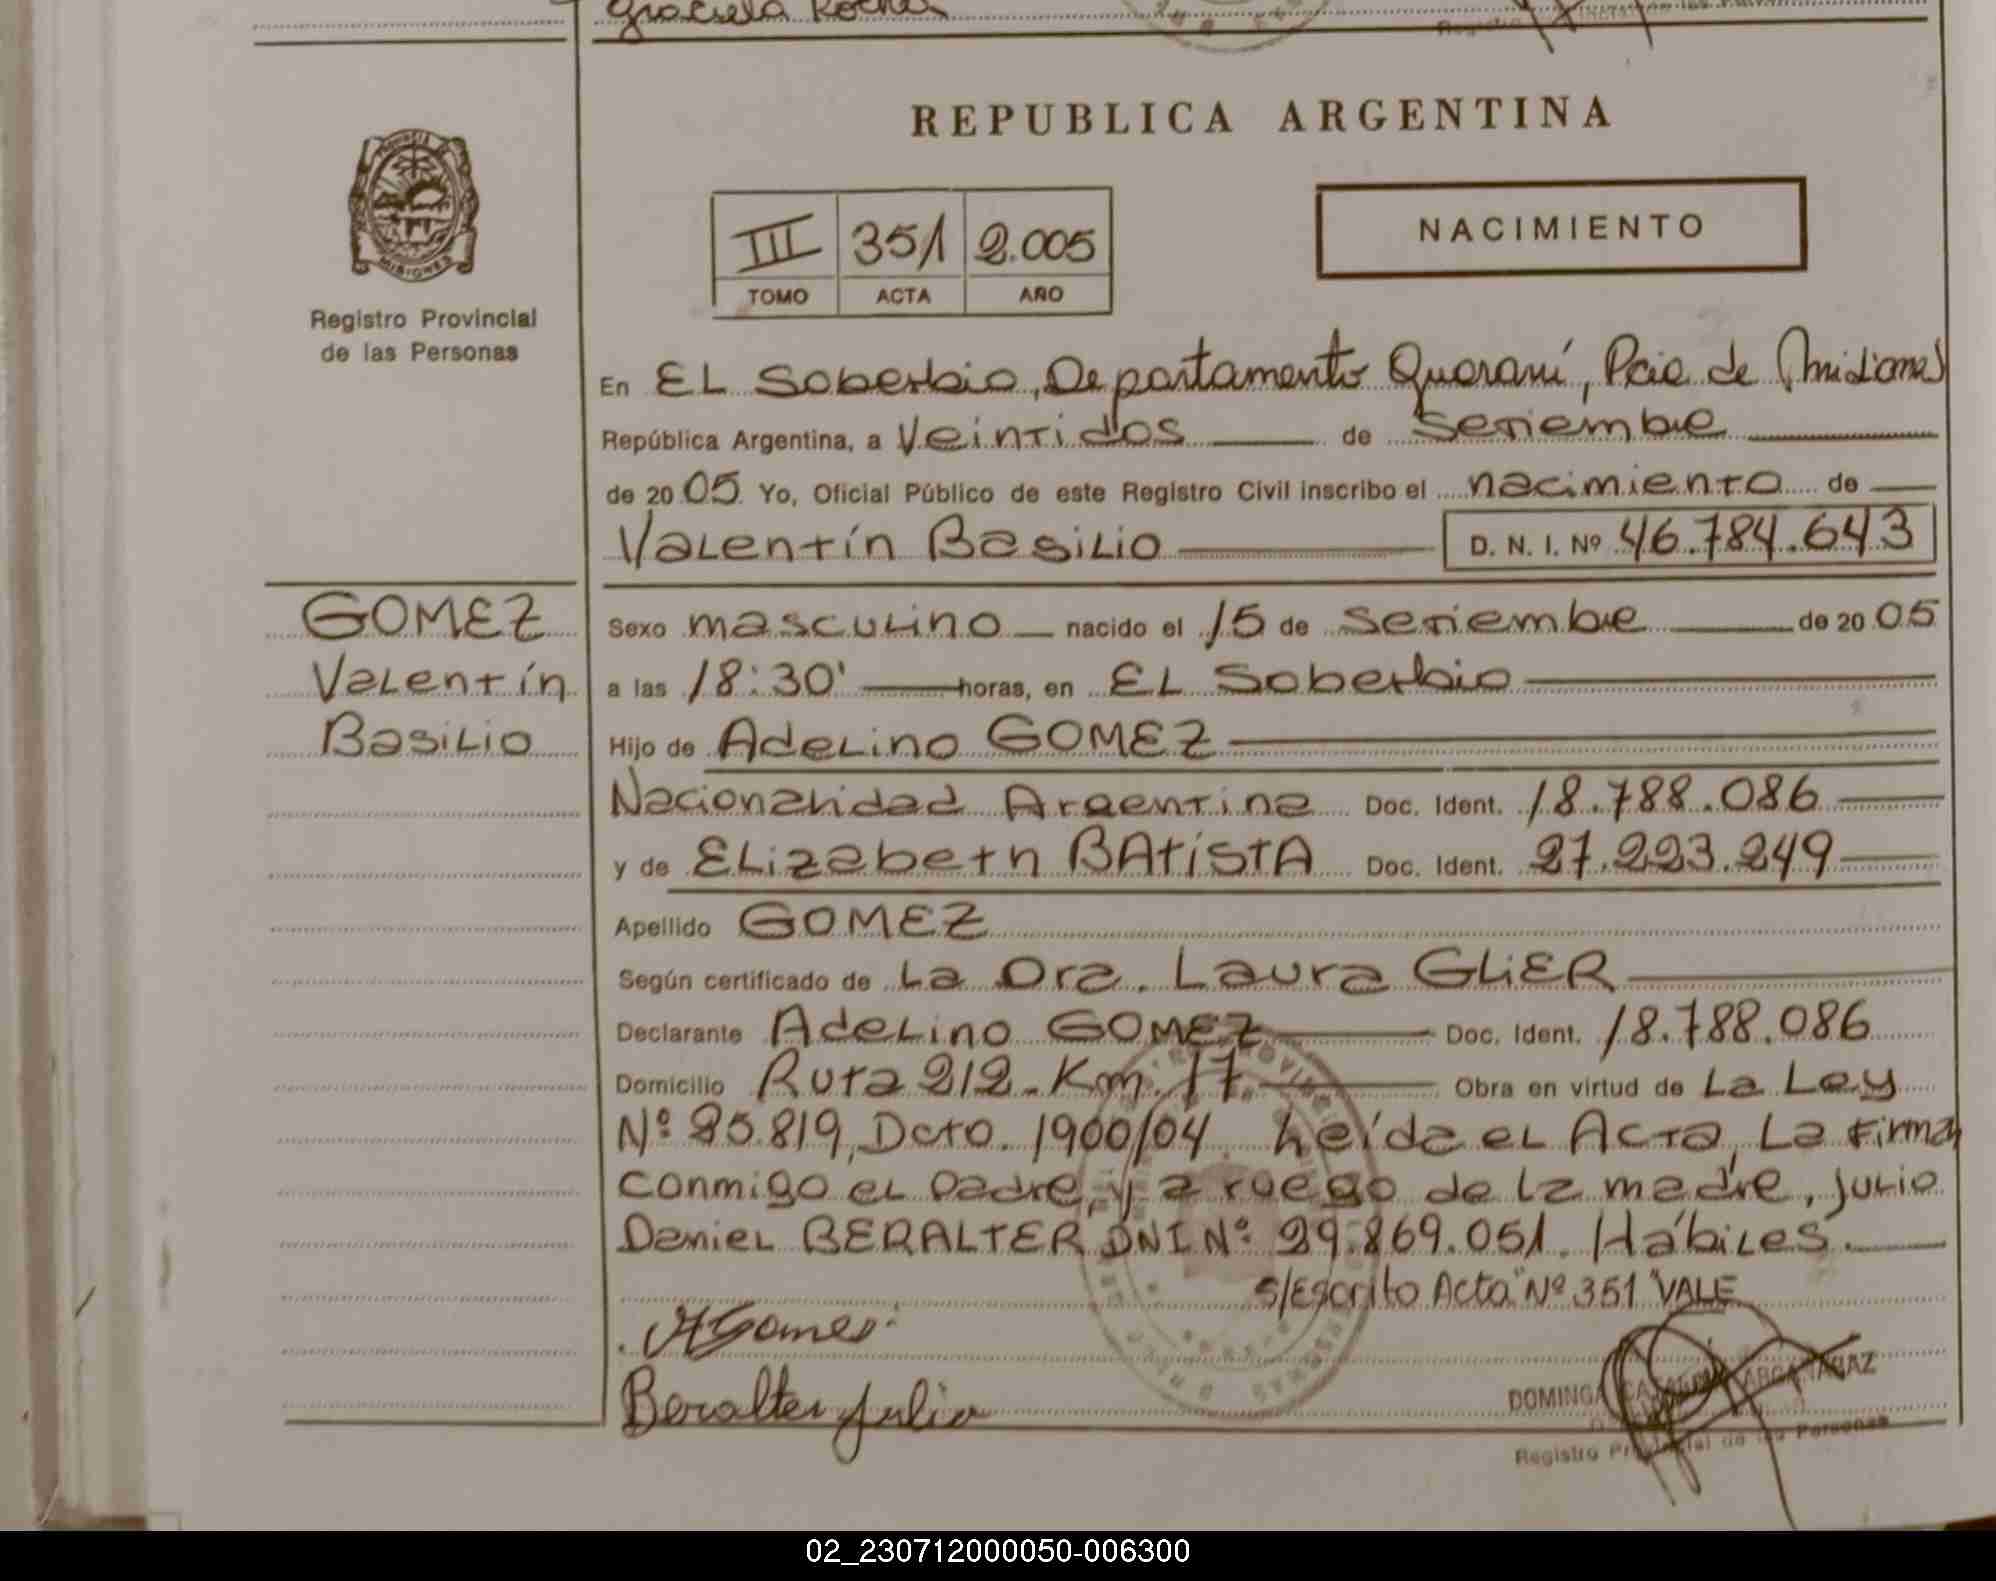 Graciela Rocha
REPUBLICA ARGENTINA
PROVINCIA DE
MISIONES
Registro Provincial
de las Personas
III 351 2.005
TOMO ACTA AÑO
NACIMIENTO
En EL Soberbio, Departamento Guaraní, Pcia de Misiones
República Argentina, a Veintidos de Setiembre
de 2005 Yo, Oficial Público de este Registro Civil inscribo el nacimiento de
Valentín Basilio D. N. I. Nº 46.784.643
GOMEZ
Valentín
Basilio
Sexo masculino nacido el 15 de Setiembre de 2005
a las 18:30' horas, en EL Soberbio
Hijo de Adelino GOMEZ
Nacionalidad Argentina Doc. Ident. 18.788.086
y de Elizabeth BAtistA Doc. Ident. 27.223.249
Apellido GOMEZ
Según certificado de La Dra. Laura GLIER
Declarante Adelino GOMEZ Doc. Ident. 18.788.086
Domicilio Ruta 212 - Km. 17 Obra en virtud de La Ley
Nº 25.819, Dcto. 1900/04 Leída el Acta, La Firma
conmigo el padre, y a ruego de la madre, Julio
Daniel BERALTER DNI Nº 29.869.051. Hábiles.
S/Escrito Acta "Nº 351" VALE
AGomes
Beralter Julio
DOMINGA ARGAÑARAZ
Registro Provincial de las Personas
02_230712000050-006300